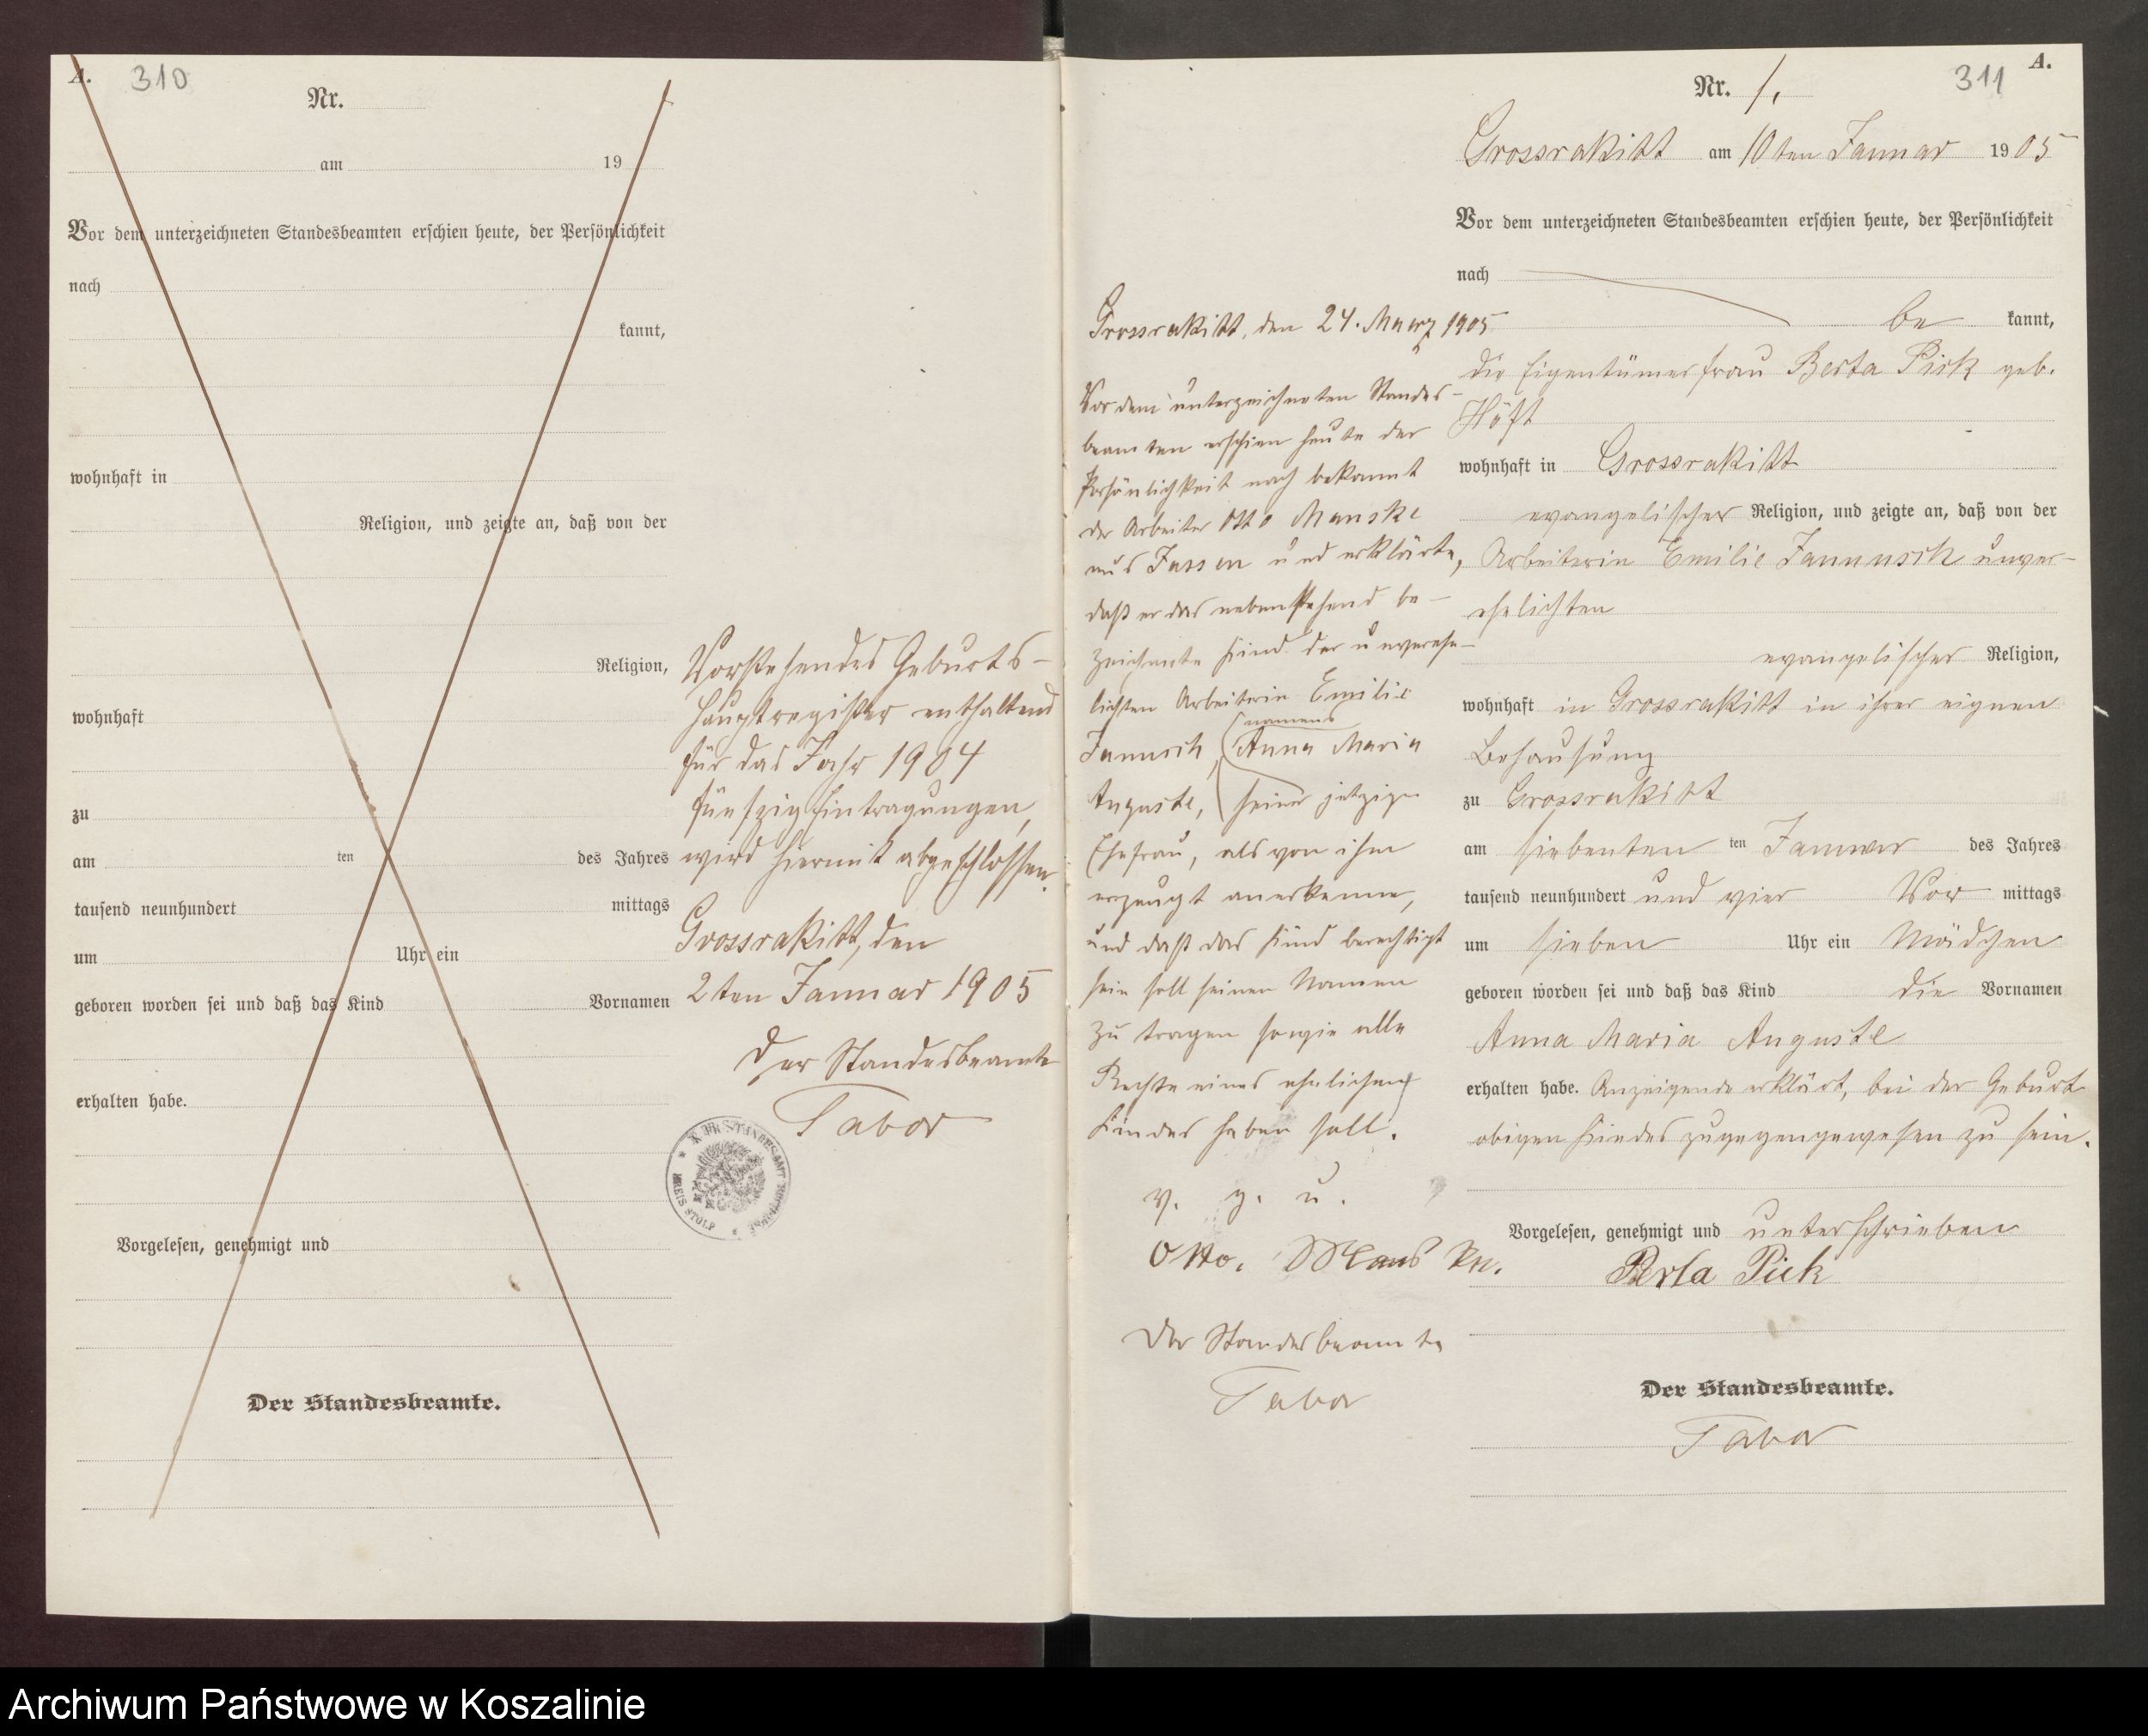 A. 310
Nr.
am 19
Vor dem unterzeichneten Standesbeamten erschien heute, der Persönlichkeit
nach
kannt,
wohnhaft in
Religion, und zeigte an, daß von der
Religion,
wohnhaft
zu
am ten des Jahres
tausend neunhundert mittags
um Uhr ein
geboren worden sei und daß das Kind Vornamen
erhalten habe.
Vorgelesen, genehmigt und
Der Standesbeamte.
Vorstehendes Geburts-
hauptregister enthaltend
für das Jahr 1904
fünfzig Eintragungen,
wird hiermit abgeschlossen.
Grossrakitt, den
2ten Januar 1905
Der Standesbeamte
Tabor
KREIS STOLP
A.
311
Nr. 1.
Grossrakitt am 10ten Januar 1905
Vor dem unterzeichneten Standesbeamten erschien heute, der Persönlichkeit
nach
be kannt,
die Eigentümerfrau Berta Pick geb.
Höft
wohnhaft in Grossrakitt
evangelischer Religion, und zeigte an, daß von der
Arbeiterin Emilie Jannusch unver-
ehelichten
evangelischer Religion,
wohnhaft in Grossrakitt in ihrer eignen
Behausung
zu Grossrakitt
am siebenten ten Januar des Jahres
tausend neunhundert und vier Vor mittags
um sieben Uhr ein Mädchen
geboren worden sei und daß das Kind die Vornamen
Anna Maria Auguste
erhalten habe. Anzeigende erklärt, bei der Geburt
obigen Kindes zugegengewesen zu sein.
Vorgelesen, genehmigt und unterschrieben
Berta Pick
Der Standesbeamte.
Tabor
Grossrakitt, den 24. März 1905
Vor dem unterzeichneten Standes-
beamten erschien heute der
Persönlichkeit nach bekannt
der Arbeiter Otto Manske
aus Jassen und erklärte,
daß er das nebenstehend be-
zeichnete Kind der unverehe-
lichten Arbeiterin Emilie
namens
Jannsch, Anna Maria
Auguste, seiner jetzigen
Ehefrau, als von ihm
erzeugt anerkenne,
und daß das Kind berechtigt
sein soll seinen Namen
zu tragen sowie alle
Rechte eines ehelichen
Kindes haben soll.
v. g. u.
Otto. Manske.
Der Standesbeamte
Tabor
Archiwum Państwowe w Koszalinie